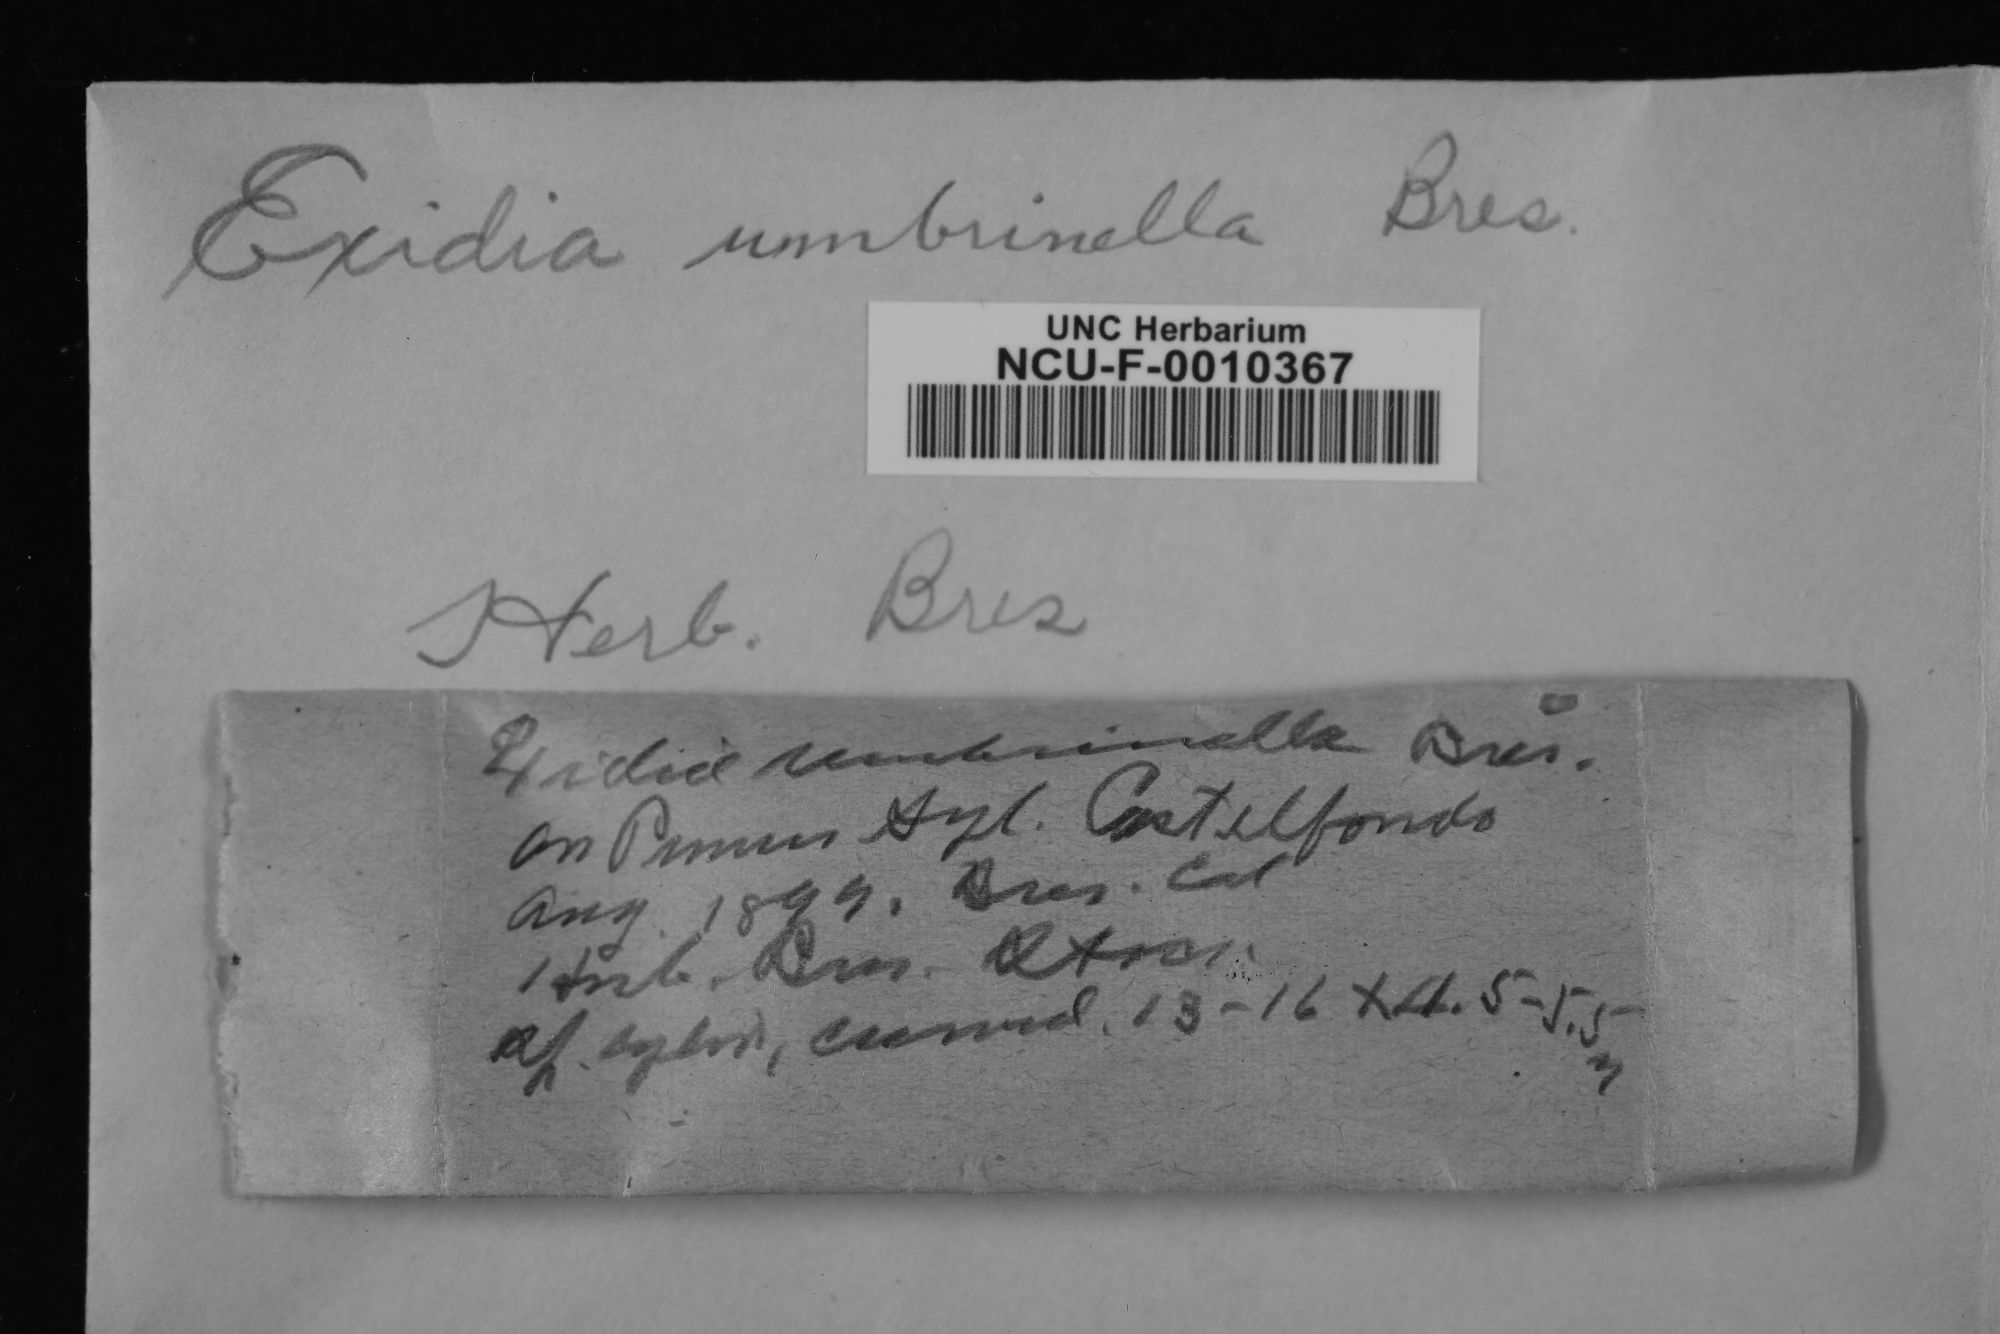 Exidia umbrinella Bres.
UNC Herbarium
NCU-F-0010367
Herb. Bres
Exidia umbrinella Bres.
on Pinus Syl. Castelfondo
Aug. 1899. Bres. Col
Herb. Bres. Stock.
sp. cylin, curved. 13-16 x 4.5-5.5